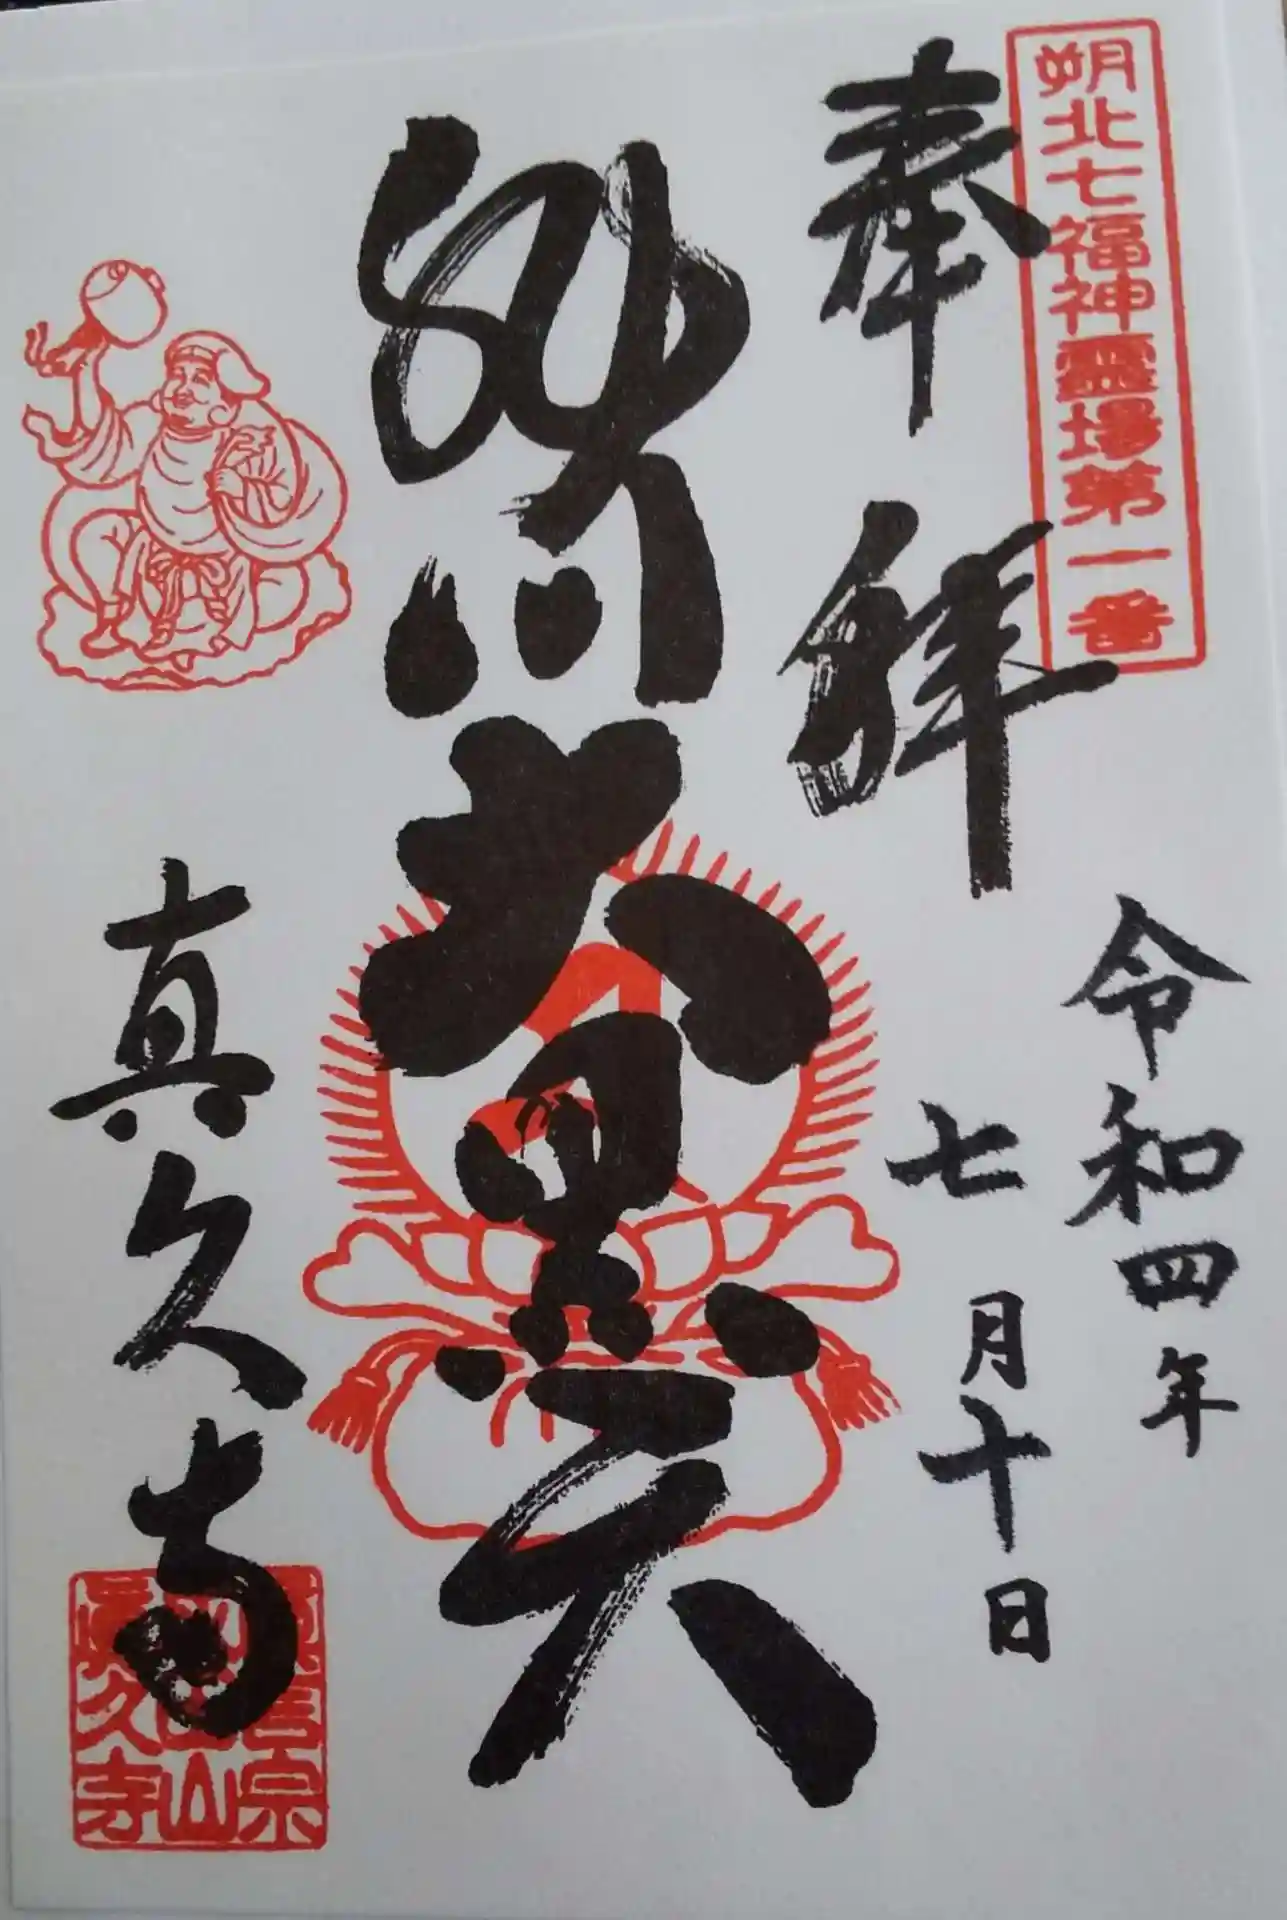 朔北七福神霊場第一番
奉拝
令和四年
七月十日
大黒天
真久寺
宗
山
眞久寺